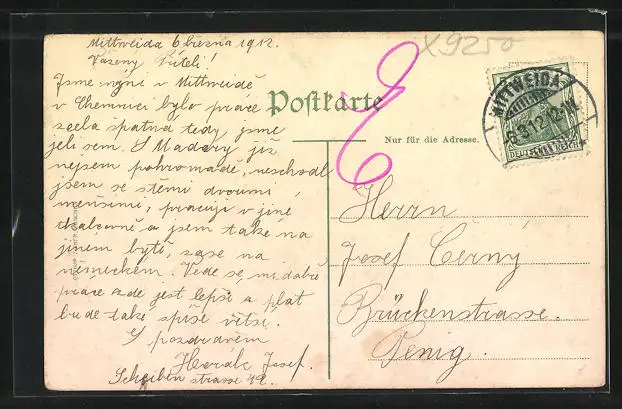 Mittweida 6 března 1912.
Vážený Příteli!
Jsme nyní v Mittweidě
v Chemnici bylo práce
zcela špatná tedy jsme
jeli sem. S Madery již
nejsem pohromadě, neschodl
jsem se stemi dvoumi
menšemi, pracuji v jiné
tkalcovně a jsem take na
jinem bytě, zase na
německém. Vede se mi dobře
práce zde jest lepší a plat
bude také spíše větší.
S pozdravem
Horák Josef.
Scheiben strasse 42.
X9250
Postkarte
Nur für die Adresse.
MITTWEIDA
6.3.12.
DEUTSCHES REICH
Herrn
Josef Černý
Brückenstrasse.
Penig.